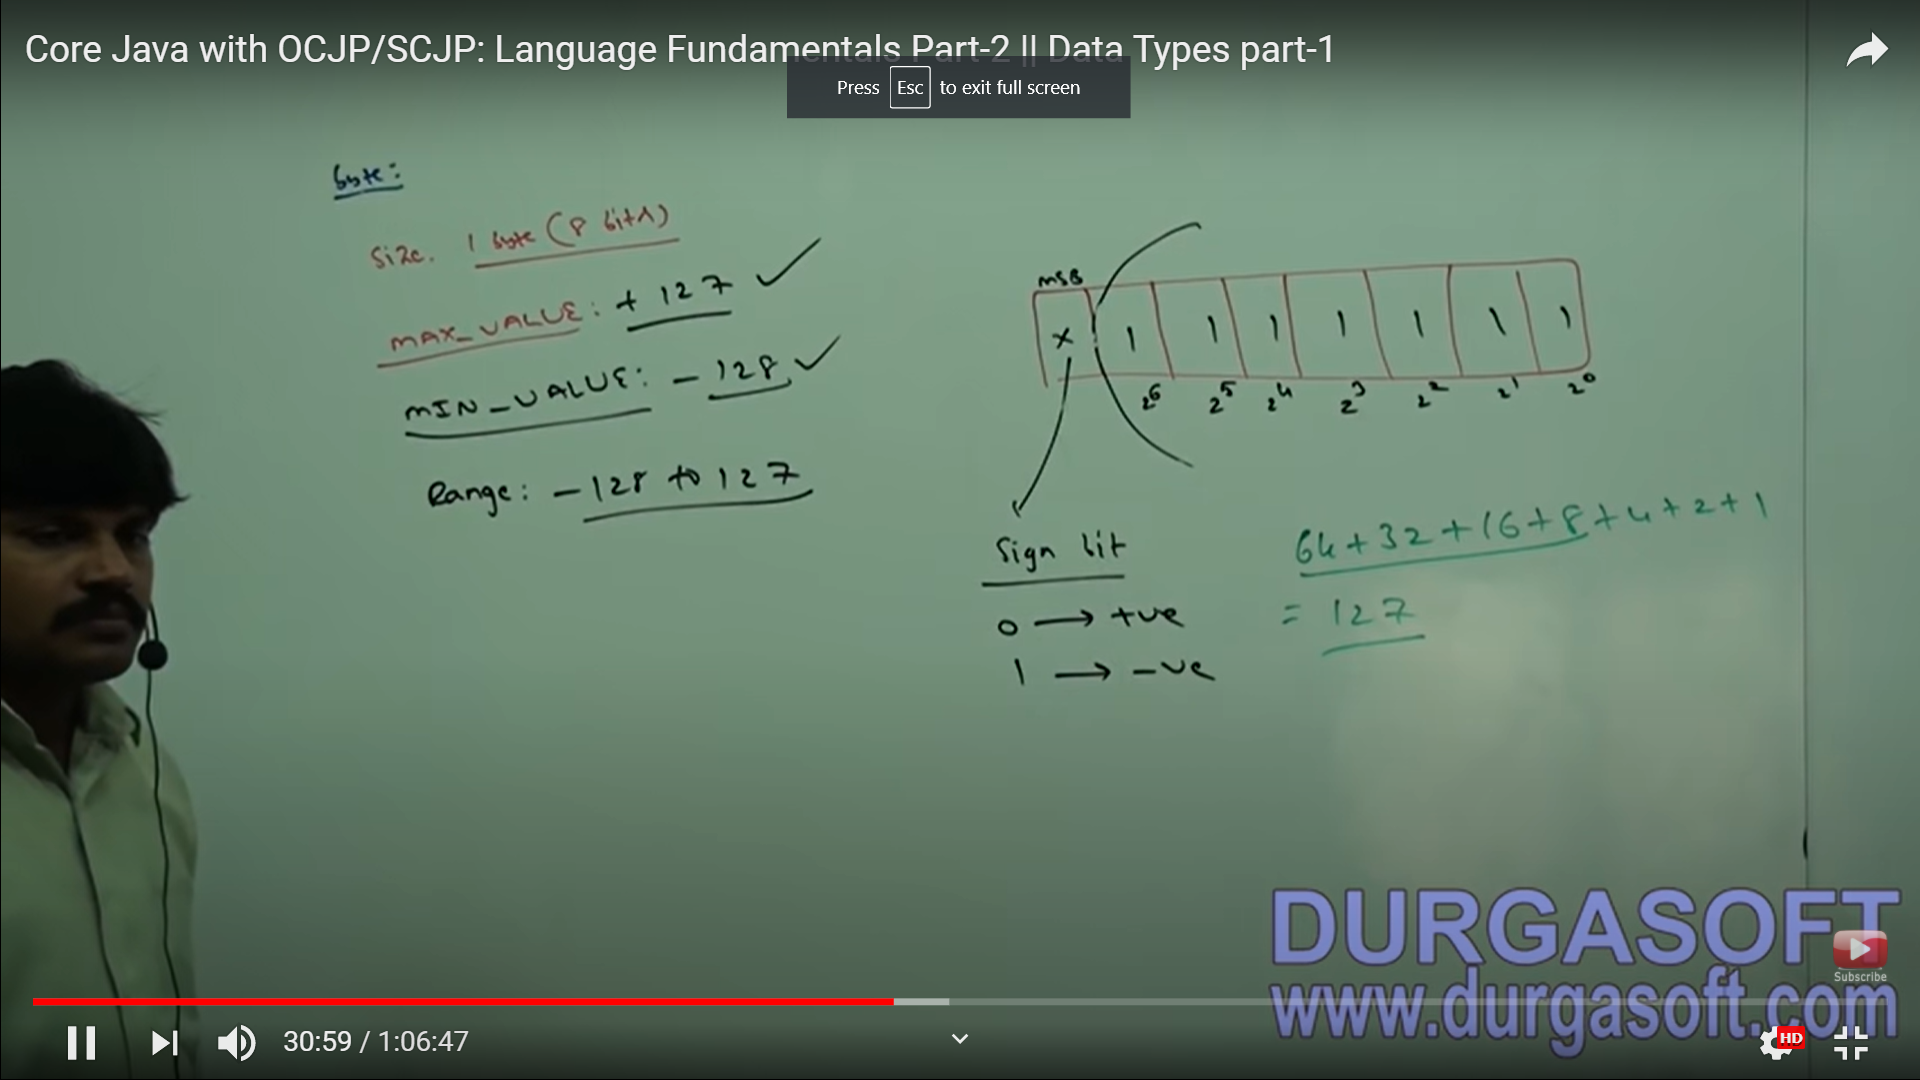 Core Java with OCJP/SCJP: Language Fundamentals Part-2 || Data Types part-1
Press Esc to exit full screen
byte:
Size. 1 byte (8 bits)
MAX_VALUE: + 127 ✓
MIN_VALUE: - 128 ✓
Range: - 128 to 127
MSB
x 1 1 1 1 1 1 1
2⁶ 2⁵ 2⁴ 2³ 2² 2¹ 2⁰
Sign bit
0 → +ve
1 → -ve
64+32+16+8+4+2+1
= 127
DURGASOFT
www.durgasoft.com
Subscribe
30:59 / 1:06:47
HD